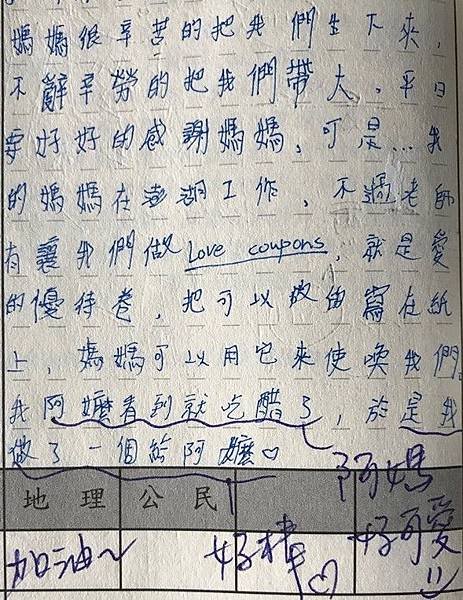 媽媽很辛苦的把我們生下來,
不辭辛勞的把我們帶大,平日
要好好的感謝媽媽,可是…我
的媽媽在澎湖工作,不過老師
有讓我們做Love coupons,就是愛
的優待卷,把可以做的寫在紙
上,媽媽可以用它來使喚我們。
我阿嬤看到就吃醋了,於是我
做了一個給阿嬤♡
阿媽
好可愛
地理 公民
加油~ 好棒♡